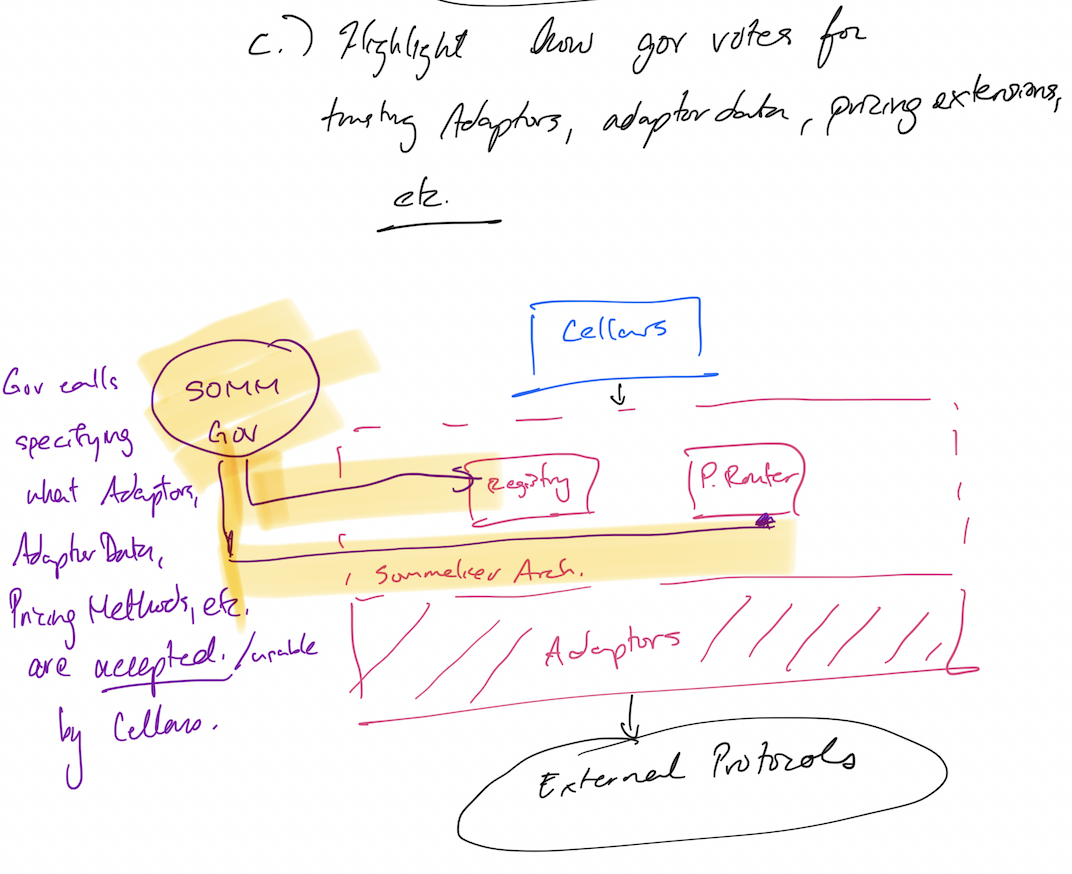 c.) Highlight how gov votes for
trusting Adaptors, adaptor data, pricing extensions,
etc.
Cellars
SOMM
Gov
Gov calls
specifying
what Adaptors,
Adaptor Data,
Pricing Methods, etc.
are accepted./usable
by Cellars.
Registry
P. Router
Sommelier Arch.
Adaptors
External Protocols